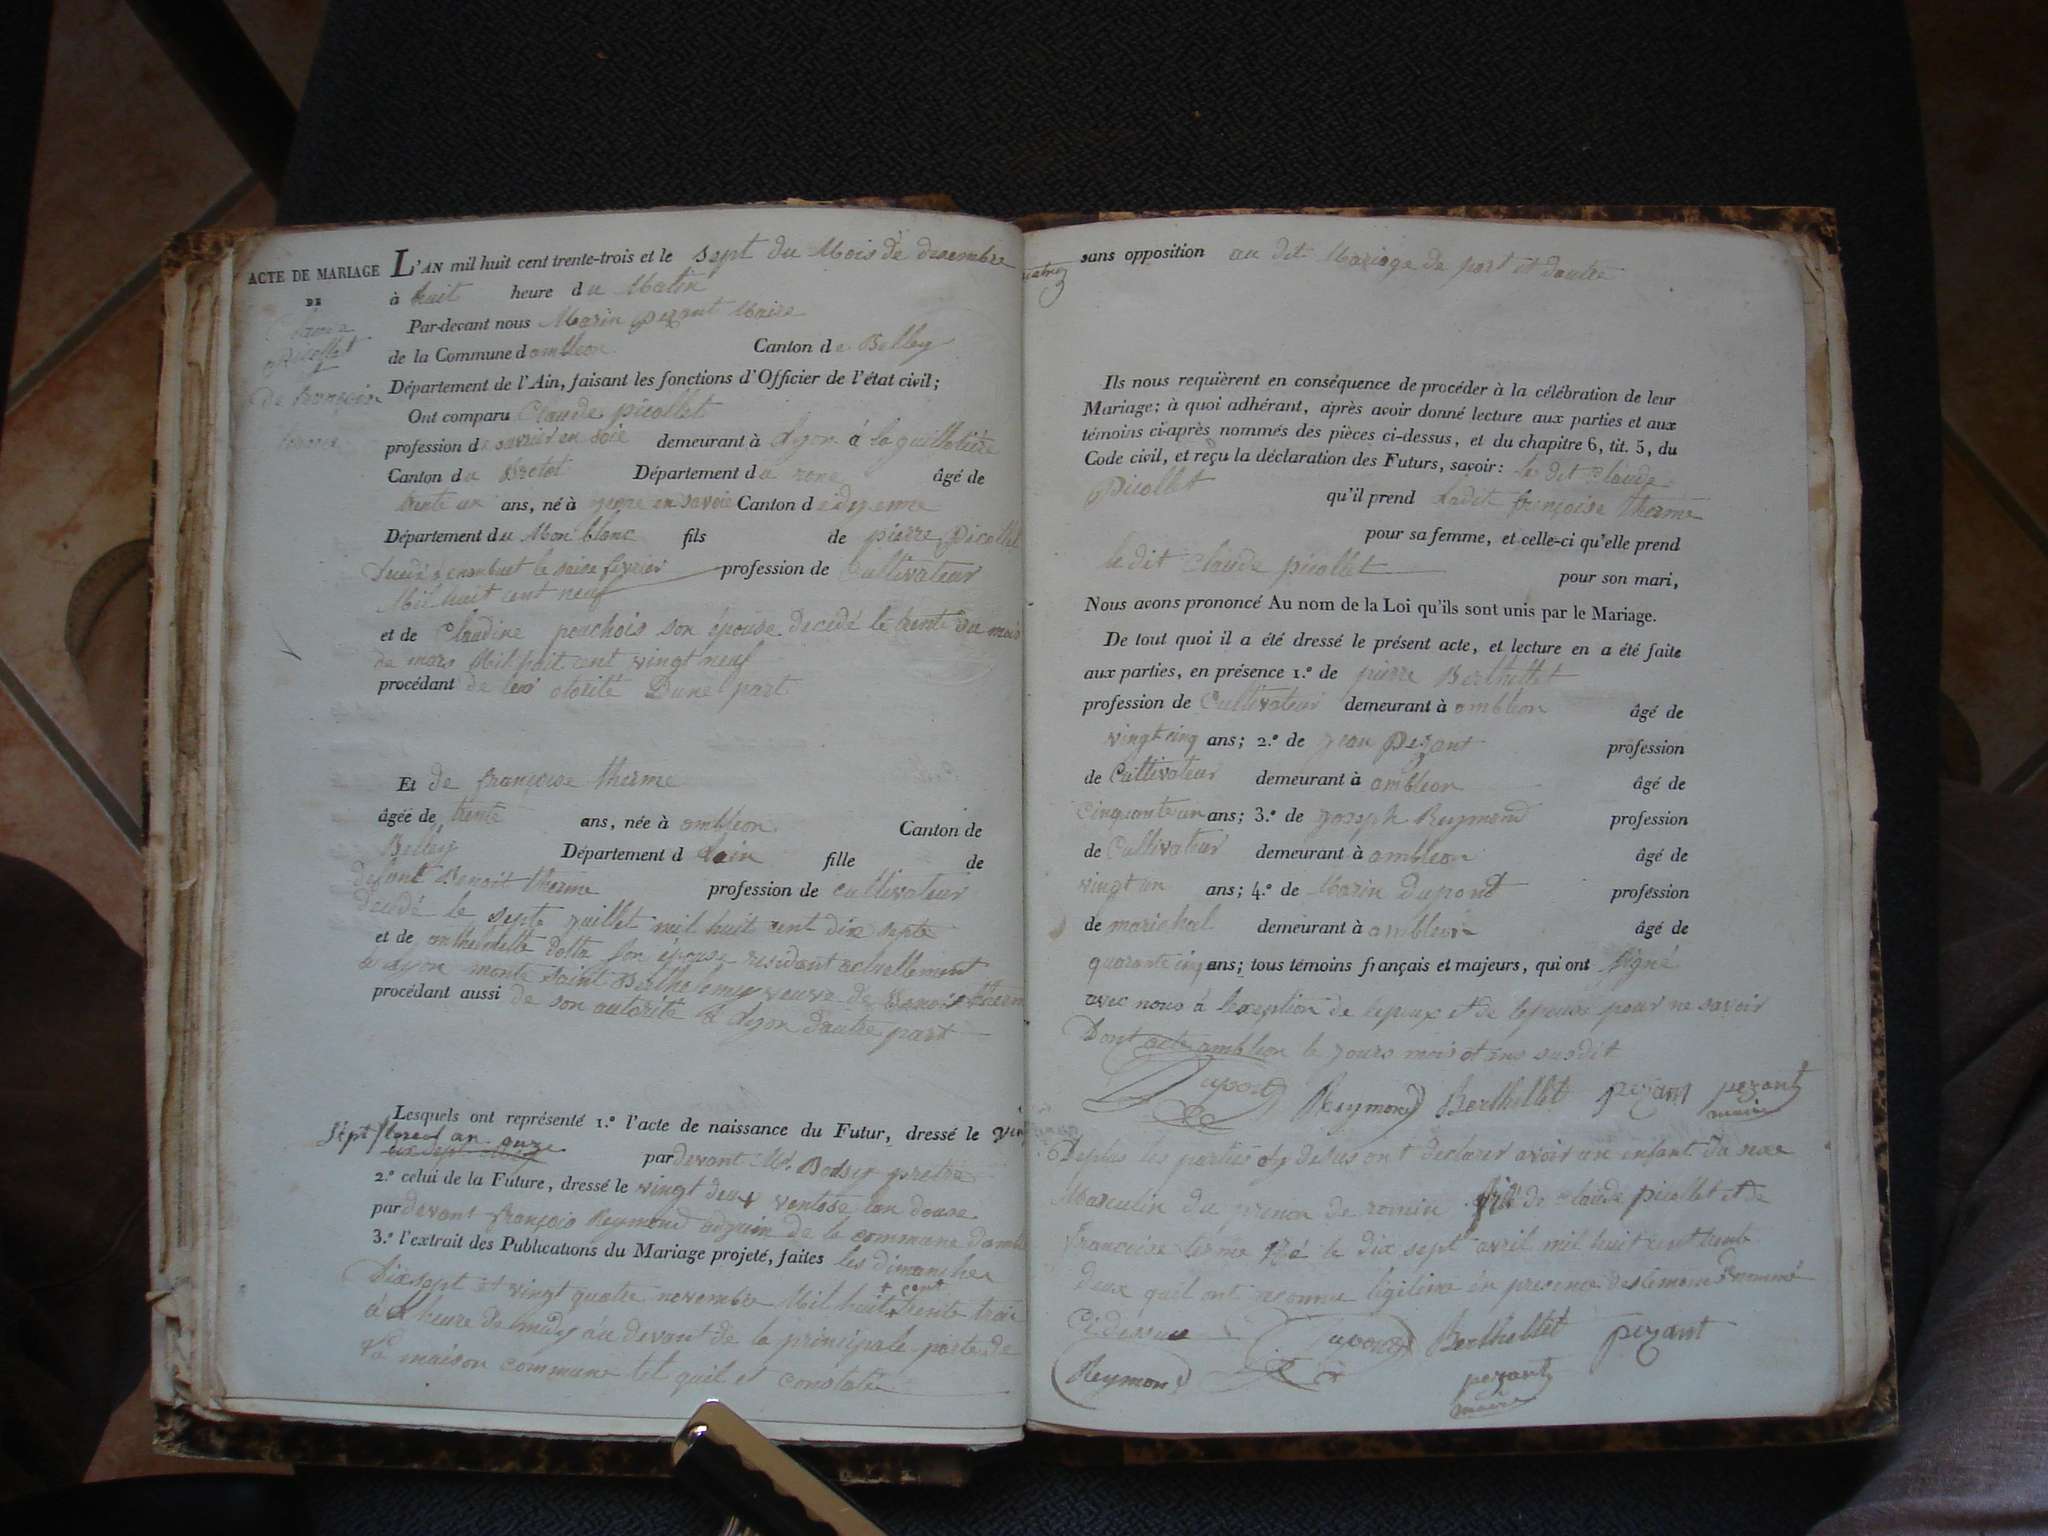 ACTE DE MARIAGE
DE
Claude
Picollet
&
De françoise
therme
L'AN mil huit cent trente-trois et le sept du Mois de desembre
à huit heure du Matin
Par-devant nous Marin pezant Maire
de la Commune d'ambleon Canton de Belley
Département de l'Ain, faisant les fonctions d'Officier de l'état civil;
Ont comparu Claude picollet
profession de ouvrier en soie demeurant à Lyon á la guillotière
Canton du Département du rone âgé de
trente un ans, né à yenne en savoie Canton d'idyenne
Département du Mon blanc fils de pierre Picollet
Decedé le saise fevrier profession de Cultivateur
Mil huit cent neuf
et de Claudine pouchois son épouse decedé le trente du mois
de mars Mil huit cent vingt neuf
procédant de leur otorité Dune part
Et de françoise therme
âgée de trente ans, née à ambleon Canton de
Belley Département d Lain fille de
defunt Benoit therme profession de cultivateur
decedé le septe juillet mil huit cent dix septe
et de son épouse residant actuellement
a Lyon monté saint Bathelemy veuve de Benoit therm
procédant aussi de son autorité à Lyon dautre part
Lesquels ont représenté 1.º l'acte de naissance du Futur, dressé le vin
sept floreal an onze
par devant Mr. Bodsy pretre
2.º celui de la Future, dressé le vingt deux ventose lan douse
par devant françois Reymond adjoin de la commune dambl
3.º l'extrait des Publications du Mariage projeté, faites les dimanches
Dixsept et vingt quatre novembre Mil huit cent trente trois
á heure de midy au devant de la principale porte de
la maison commune tel quil et constatée
sans opposition au dit Mariage de part et dautre
Ils nous requièrent en conséquence de procéder à la célébration de leur
Mariage; à quoi adhérant, après avoir donné lecture aux parties et aux
témoins ci-après nommés des pièces ci-dessus, et du chapitre 6, tit. 5, du
Code civil, et reçu la déclaration des Futurs, savoir: le dit Claude
Picollet qu'il prend ladite françoise therme
pour sa femme, et celle-ci qu'elle prend
le dit Claude picollet pour son mari,
Nous avons prononcé Au nom de la Loi qu'ils sont unis par le Mariage.
De tout quoi il a été dressé le présent acte, et lecture en a été faite
aux parties, en présence 1.º de pierre Berthellet
profession de Cultivateur demeurant à ambleon âgé de
vingt cinq ans; 2.º de jean Pezant profession
de Cultivateur demeurant à ambleon âgé de
cinquante un ans; 3.º de joseph Reymond profession
de Cultivateur demeurant à ambleon âgé de
vingt un ans; 4.º de Marin dupont profession
de marichal demeurant à ambleon âgé de
quarante cinq ans; tous témoins français et majeurs, qui ont signé
avec nous á lexeption de lepoux et de lepouse pour ne savoir
Dont acte ambleon le jours mois et ans susdit
Dupont Reymond Berthellet pezant pezant
maire
Depuis les parties cy desus ont declarer avoir un enfant du sexe
Masculin du prenon de romin fils de claude picollet et de
francoise terme né le dix sept avril mil huit cent trente
deux quil ont reconnu legitime en presence des temoin Denommé
Cidessus Dupont Berthellet pezant
Reymond pezant
maire